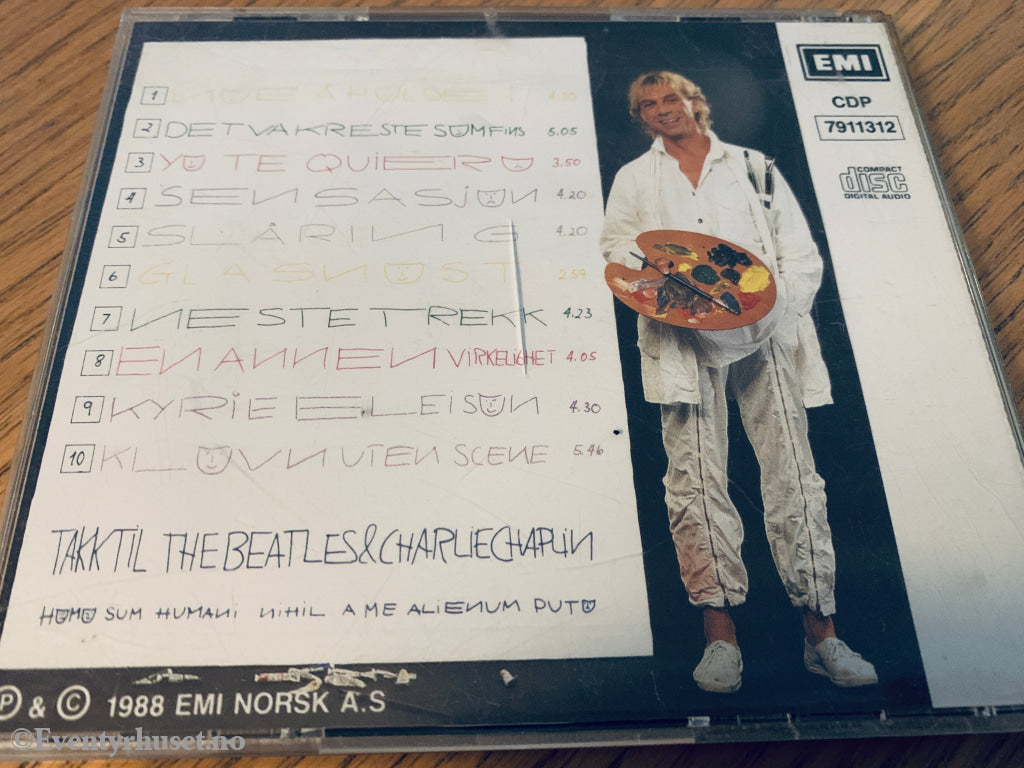 1 INGE Å HOLDE I 4.30
2 DET VAKRESTE SOM FINS 5.05
3 YO TE QUIERO 3.50
4 SENSASJON 4.20
5 SLÅRING 4.20
6 GLASNOST 2.59
7 NESTE TREKK 4.23
8 EN ANNEN VIRKELIGHET 4.05
9 KYRIE ELEISON 4.30
10 KLOVN UTEN SCENE 5.46
TAKK TIL THE BEATLES & CHARLIE CHAPLIN
HOMO SUM HUMANI NIHIL A ME ALIENUM PUTO
Ⓟ & © 1988 EMI NORSK A.S
EMI
CDP
7911312
COMPACT
disc
DIGITAL AUDIO
©Eventyrhuset.no